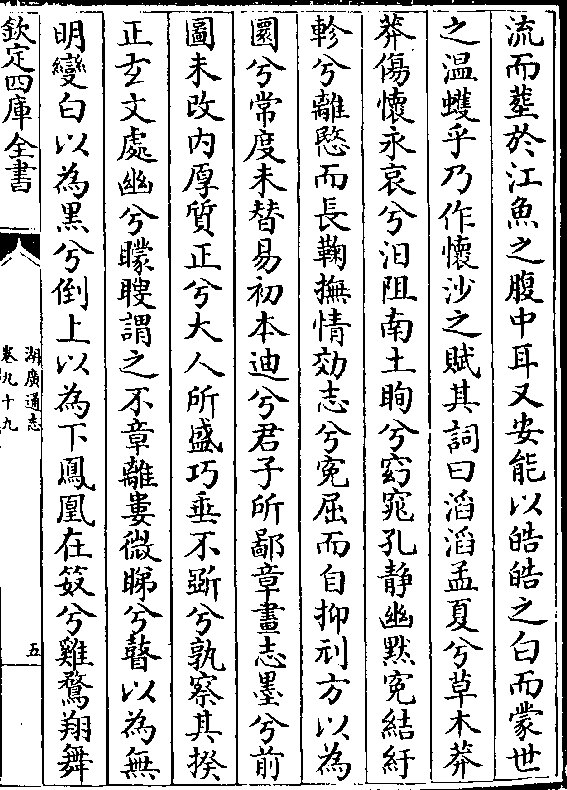 流而塟於江魚之腹中耳又安能以皓皓之白而蒙世
之温蠖乎乃作懷沙之賦其詞曰滔滔孟夏兮草木莽
莽傷懷永哀兮汨徂南土眴兮窈窕孔静幽默寃結紆
軫兮離愍而長鞠撫情効志兮寃屈而自抑刓方以為
圜兮常度未替易初本迪兮君子所鄙章畫志墨兮前
圖未改内厚質正兮大人所盛巧垂不斵兮孰察其揆
正玄文處幽兮矇瞍謂之不章離婁微睇兮瞽以為無
明變白以為黒兮倒上以為下鳳凰在笯兮雞鶩翔舞
欽定四庫全書
湖廣通志
卷九十九
五